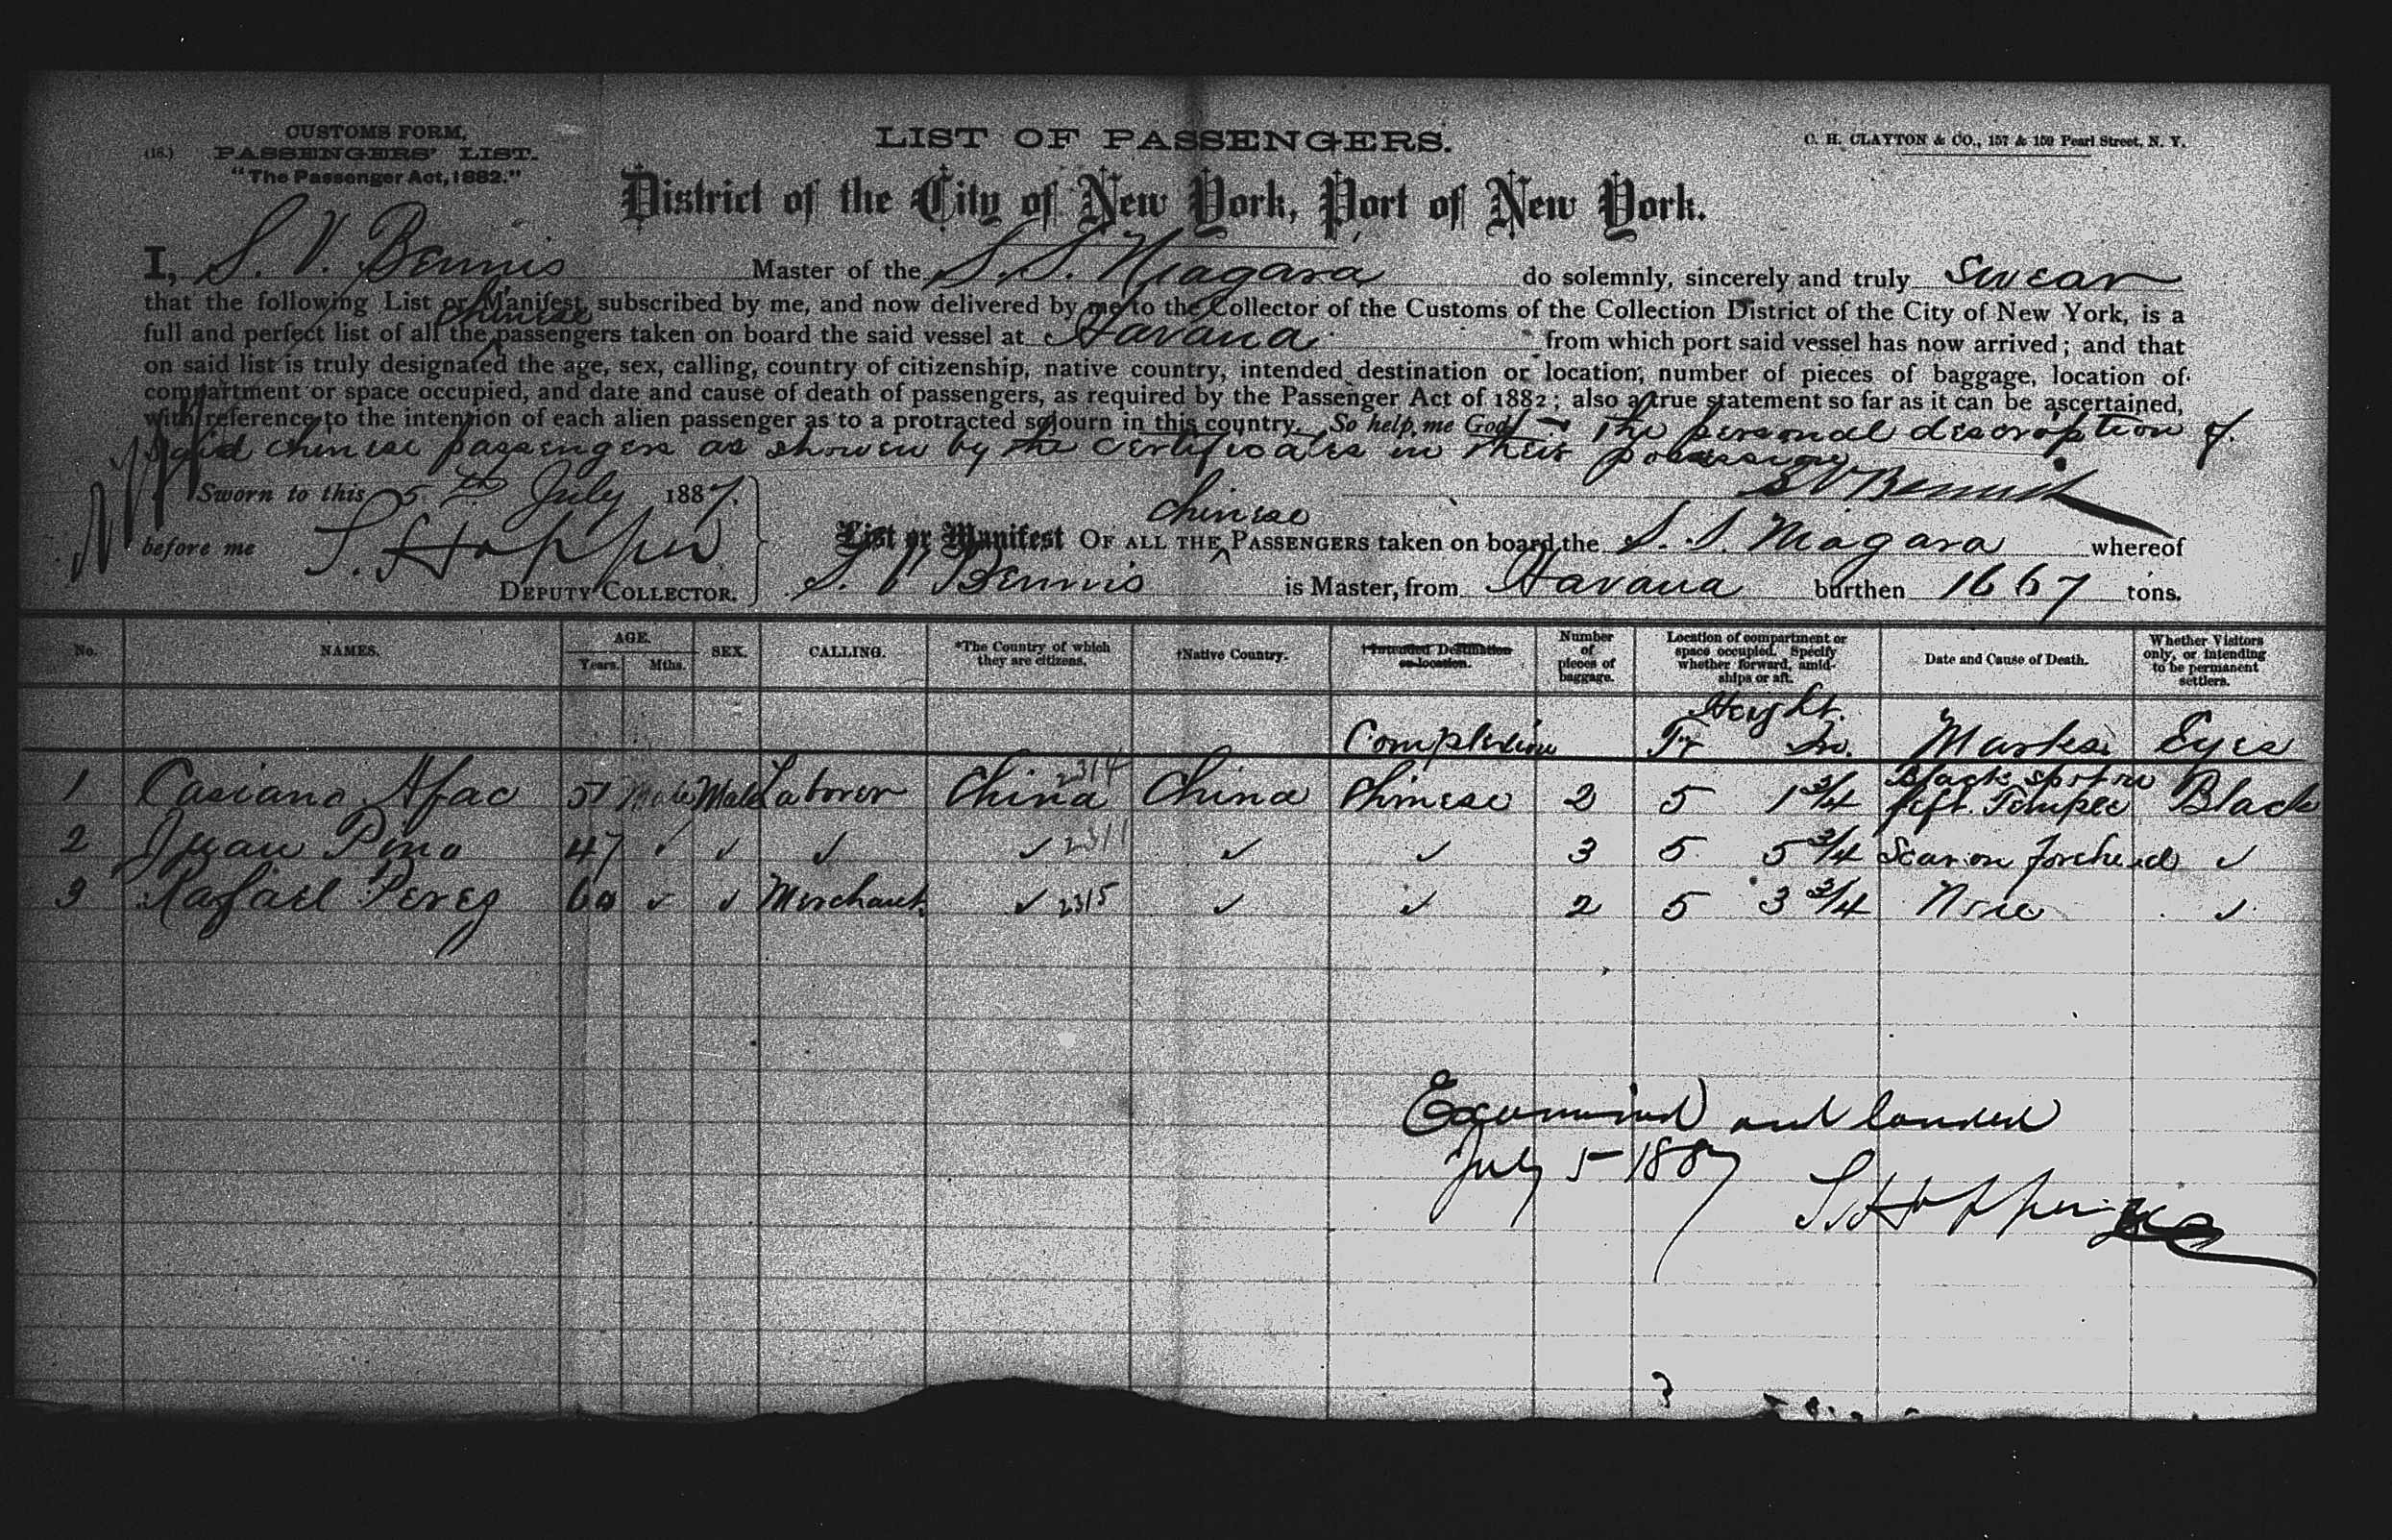 (18.)
CUSTOMS FORM,
PASSENGERS' LIST.
"The Passenger Act, 1882."
LIST OF PASSENGERS.
C. H. CLAYTON & CO., 157 & 159 Pearl Street, N. Y.
District of the City of New York, Port of New York.
I, S. V. Bennis Master of the S.S. Niagara do solemnly, sincerely and truly swear
that the following List or Manifest, subscribed by me, and now delivered by me to the Collector of the Customs of the Collection District of the City of New York, is a
full and perfect list of all the chinese passengers taken on board the said vessel at Havana from which port said vessel has now arrived; and that
on said list is truly designated the age, sex, calling, country of citizenship, native country, intended destination or location, number of pieces of baggage, location of
compartment or space occupied, and date and cause of death of passengers, as required by the Passenger Act of 1882; also a true statement so far as it can be ascertained,
with reference to the intention of each alien passenger as to a protracted sojourn in this country. So help me God. The personal description of
said chinese passengers as shown by the certificates in their possession
S V Bennis
Sworn to this 5th July 1887.
before me S. Hopper
DEPUTY COLLECTOR.
List or Manifest OF ALL THE chinese PASSENGERS taken on board the S. S. Niagara whereof
S. V Bennis is Master, from Havana burthen 1667 tons.
No. NAMES. AGE. Years. Mths. SEX. CALLING. *The Country of which they are citizens. †Native Country. †Intended Destination or location. Number of pieces of baggage. Location of compartment or space occupied. Specify whether forward, amidships or aft. Date and Cause of Death. Whether Visitors only, or intending to be permanent settlers.
Complexion Height. Ft In. Marks Eyes
1 Casiano Afac 51 Male Male Laborer China 2314 China Chinese 2 5 1 3/4 Black spot on left Temple Black
2 Juan Pino 47 ✓ ✓ ✓ ✓ 2311 ✓ ✓ 3 5 5 3/4 Scar on forehead ✓
3 Rafael Perez 60 ✓ ✓ Merchant ✓ 2315 ✓ ✓ 2 5 3 3/4 ✓
Examined and landed
July 5 1887
S. Hopper